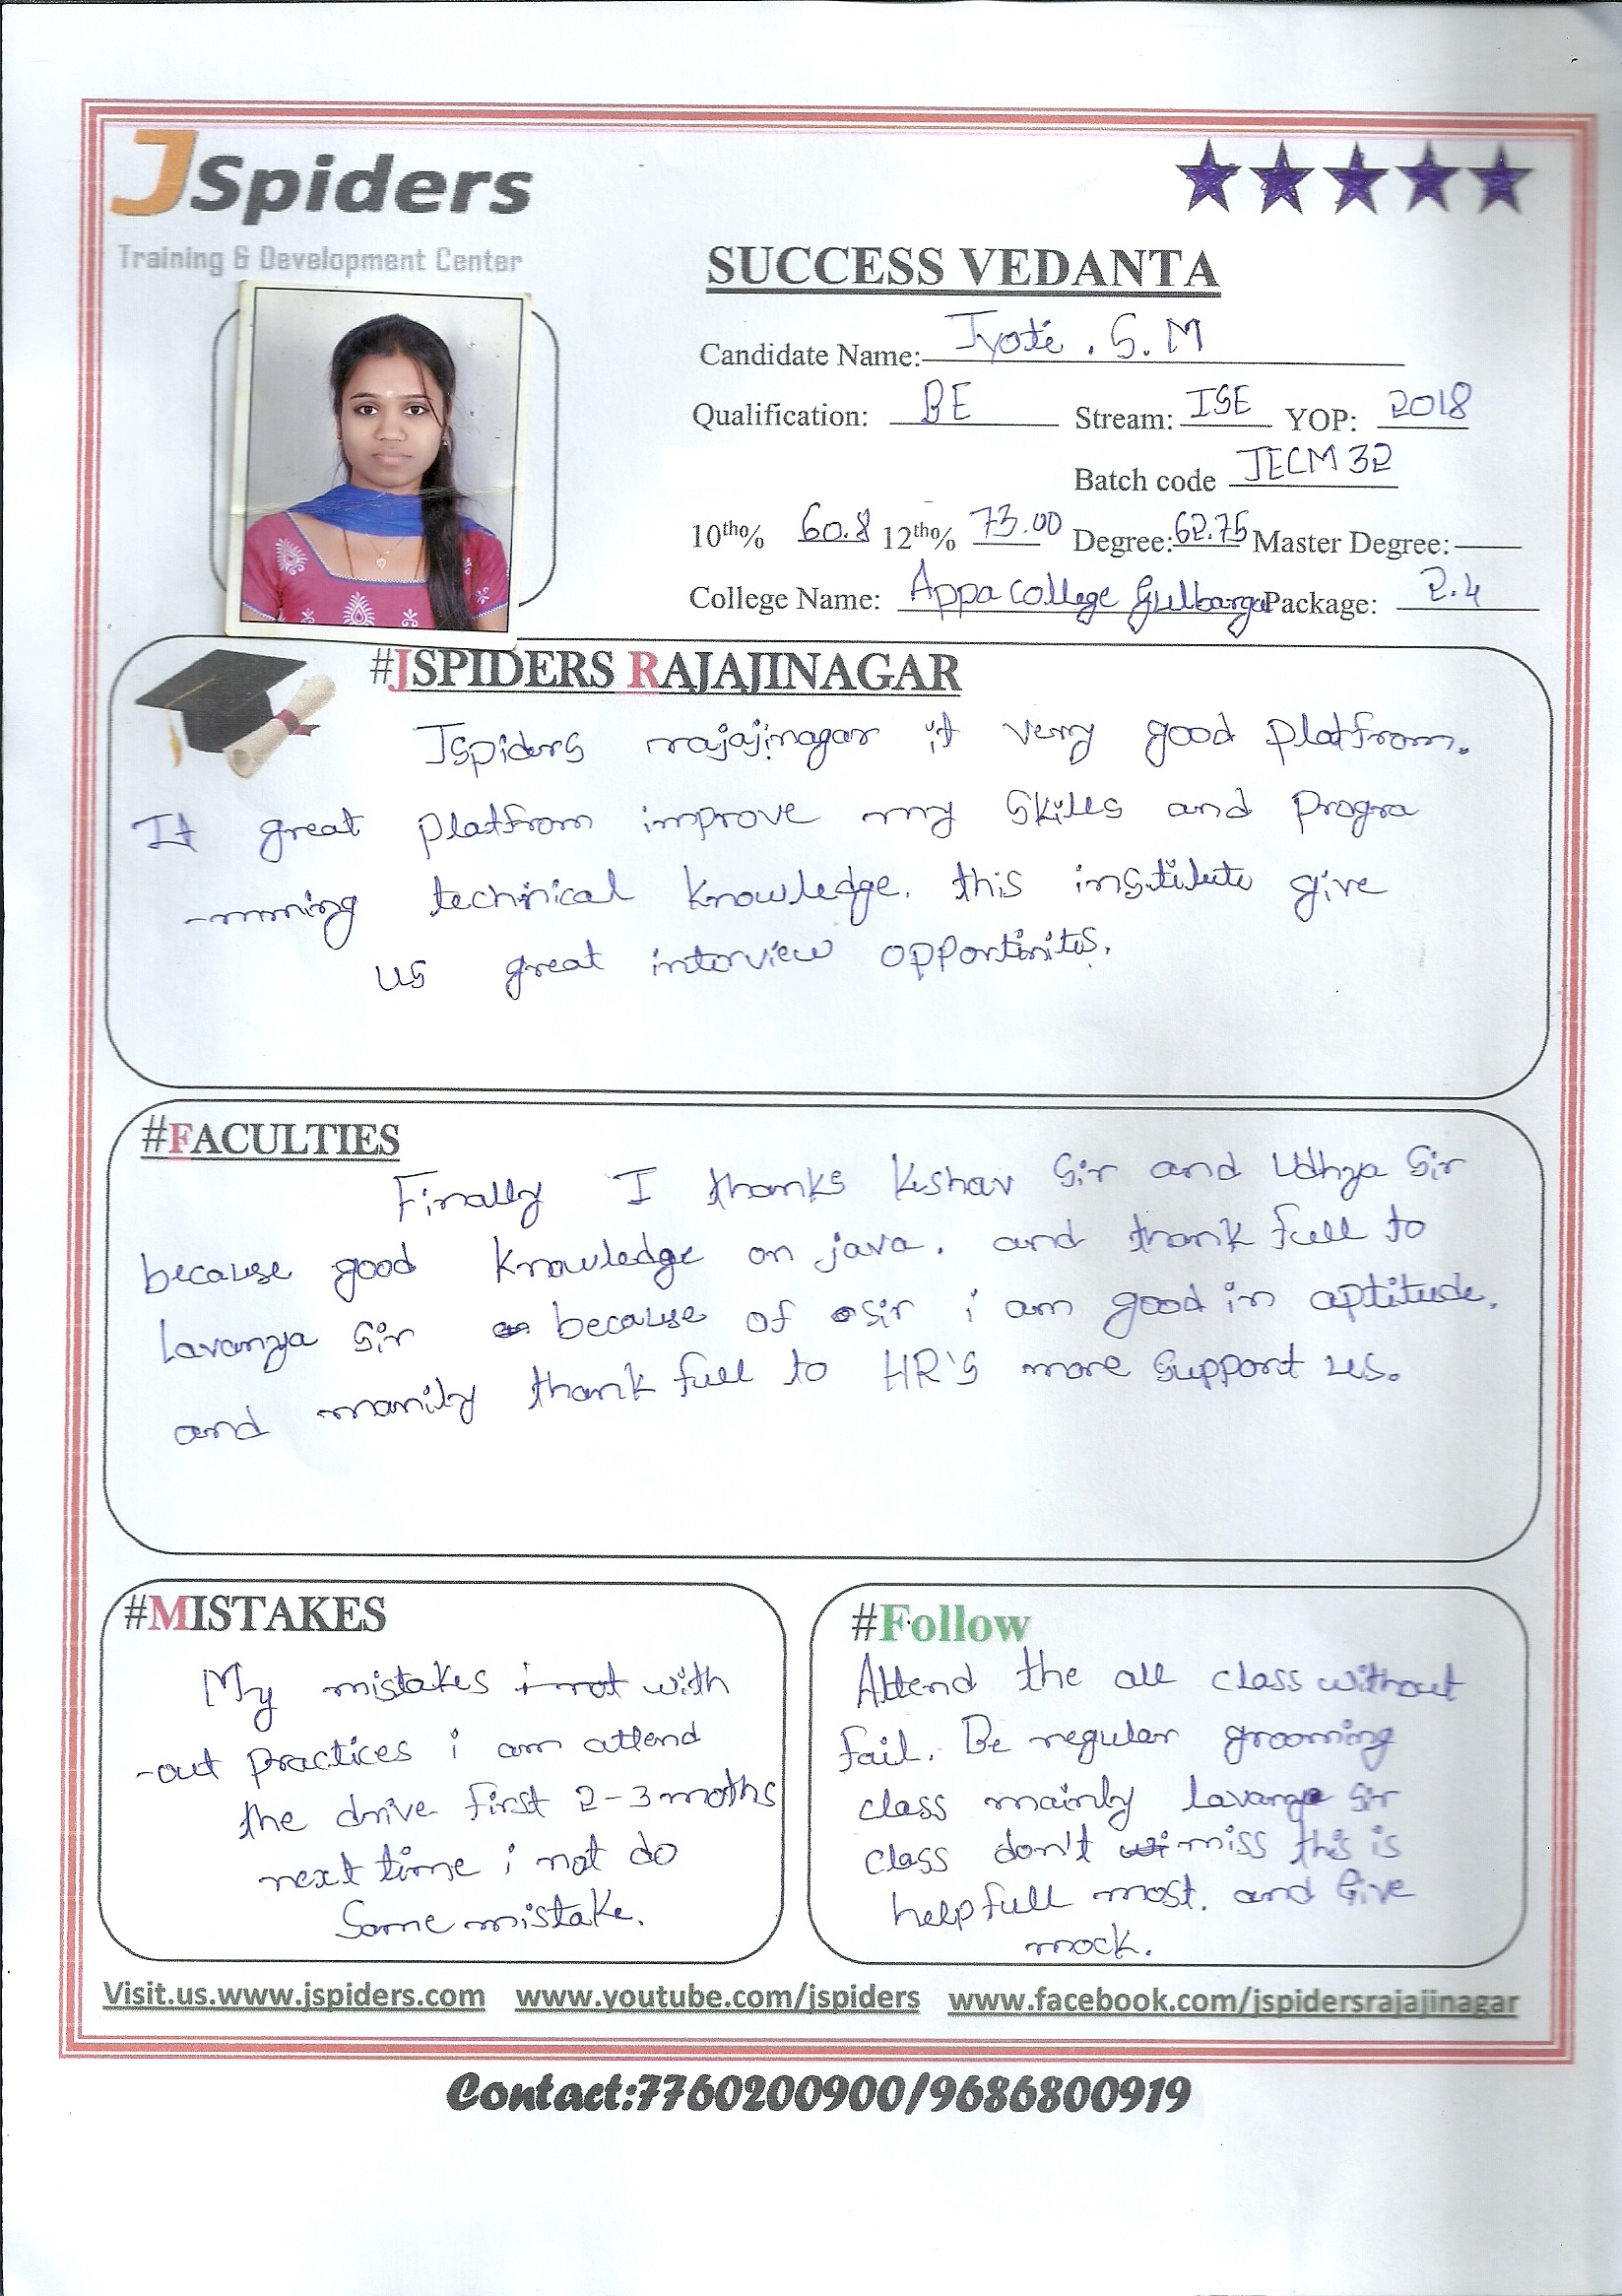 JSpiders
Training & Development Center
SUCCESS VEDANTA
Candidate Name: Jyoti . S. M
Qualification: BE Stream: ISE YOP: 2018
Batch code JECM 32
10th% 60.8 12th% 73.00 Degree: 62.75 Master Degree:
College Name: Appa college Gulbarga Package: 2.4
#JSPIDERS RAJAJINAGAR
Jspiders rajajinagar it very good platfrom.
It great platfrom improve my skills and progra
-mming technical knowledge. this institute give
us great interview opportinites.
#FACULTIES
Finally I thanks Keshav Sir and Udhya Sir
because good knowledge on java. and thank full to
lavanya Sir because of sir i am good in aptitude.
and manily thank full to HR'S more support us.
#MISTAKES
My mistakes with
-out practices i am attend
the drive first 2-3 moths
next time i not do
Same mistake.
#Follow
Attend the all class without
fail. Be regular grooming
class mainly lavanya sir
class don't miss this is
help full most. and Give
mock.
Visit.us.www.jspiders.com www.youtube.com/jspiders www.facebook.com/jspidersrajajinagar
Contact:7760200900/9686800919